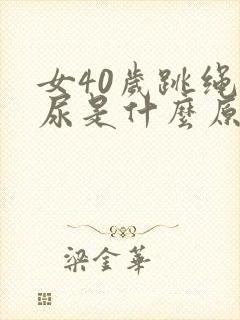 女40歲跳绳
尿是什麼原
梁金華